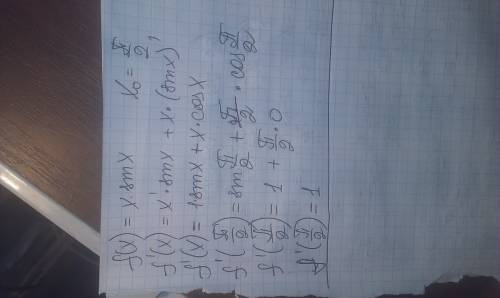 f(x) = x sinx    x₀ = π/2
f'(x) = x'·sinx + x·(sinx)'
f'(x) = 1sinx + x·cosx
f'(π/2) = sin π/2 + π/2 · cos π/2
f'(π/2) = 1 + π/2 · 0
f'(π/2) = 1